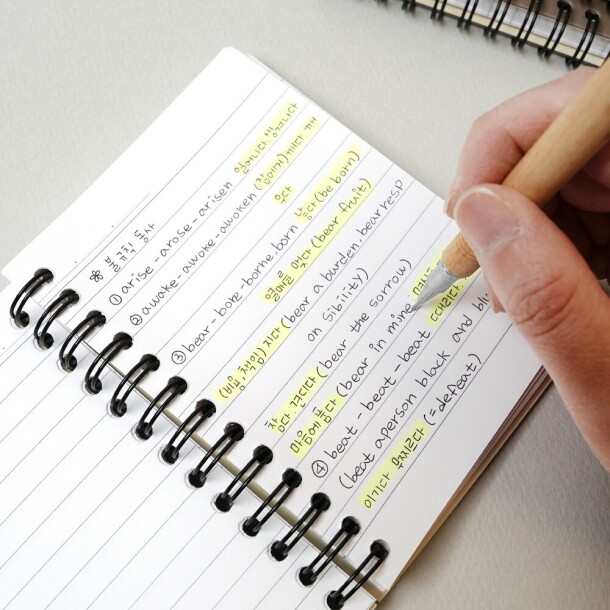 ※ 불규칙 동사
① arise - arose - arisen 일어나다. 생기다
② awake - awoke - awoken (잠에서) 깨다. 깨
우다
③ bear - bore - borne. born 낳다 (be born)
열매를 맺다 (bear fruit)
(비용, 책임) 지다 (bear a burden. bear resp
on sibility)
참다. 견디다 (bear the sorrow)
마음에 품다 (bear in mine
④ beat - beat - beat 때리다
(beat aperson black and blu
이기다 무찌르다 (=defeat)